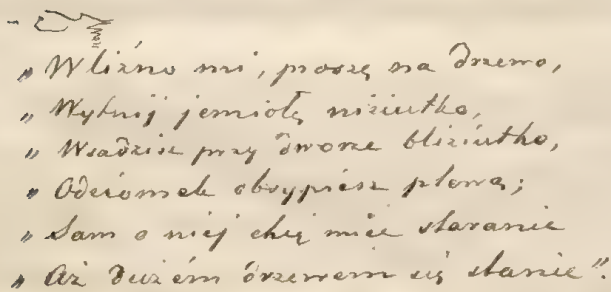 „Wliźno mi, proszę na drzewo,
„Wytnij jemiołę niziutko,
„Wsadzisz przy dworze bliziutko,
„Odziomek obsypiesz plewą;
„Sam o niej chcę mieć staranie
„Aż dużém drzewem się stanie".